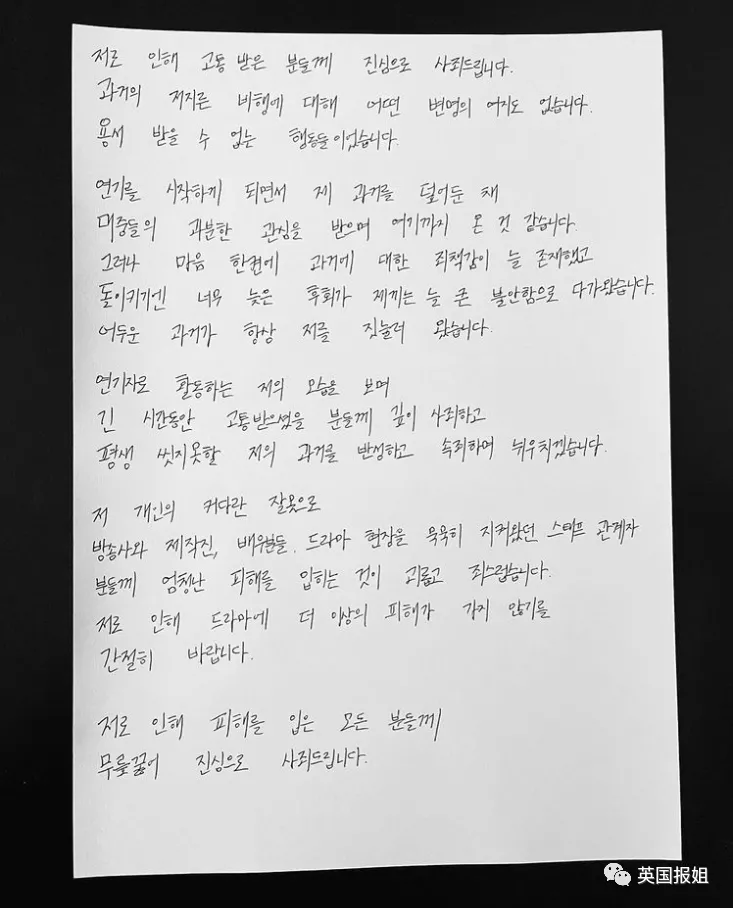 저로 인해 고통 받은 분들께 진심으로 사죄드립니다.
과거의 저지른 비행에 대해 어떤 변명의 여지도 없습니다.
용서 받을 수 없는 행동들이었습니다.
연기를 시작하게 되면서 제 과거를 덮어둔 채
대중들의 과분한 관심을 받으며 여기까지 온 것 같습니다.
그러나 마음 한켠에 과거에 대한 죄책감이 늘 존재했고
돌이키기엔 너무 늦은 후회가 제게는 늘 큰 불안함으로 다가왔습니다.
어두운 과거가 항상 저를 짓눌러 왔습니다.
연기자로 활동하는 저의 모습을 보며
긴 시간동안 고통받으셨을 분들께 깊이 사죄하고
평생 씻지못할 저의 과거를 반성하고 속죄하며 뉘우치겠습니다.
저 개인의 커다란 잘못으로
방송사와 제작진, 배우분들, 드라마 현장을 묵묵히 지켜왔던 스태프 관계자
분들께 엄청난 피해를 입히는 것이 괴롭고 죄스럽습니다.
저로 인해 드라마에 더 이상의 피해가 가지 않기를
간절히 바랍니다.
저로 인해 피해를 입은 모든 분들께
무릎꿇어 진심으로 사죄드립니다.
英国报姐